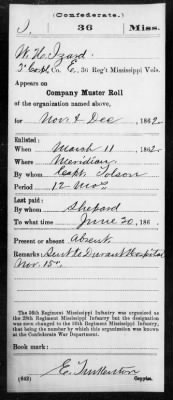 (Confederate.)
I. 36 Miss.
W. H. Izard
3" Corpl, Co. E, 36 Reg't Mississippi Vols.
Appears on
Company Muster Roll
of the organization named above,
for Nov. & Dec, 1862.
Enlisted:
When March 11, 1862.
Where Meridian
By whom Capt. Tolson
Period 12 Mos
Last paid:
By whom Shepard
To what time June 30, 186 .
Present or absent Absent
Remarks: Sent to Durant Hospital
Nov. 15"
The 36th Regiment Mississippi Infantry was organized as
the 29th Regiment Mississippi Infantry but the designation
was soon changed to the 36th Mississippi Infantry, that
being the number by which this organization was recognized
at the Confederate War Department.
Book mark:
E. Turkenton
(642) Copyist.